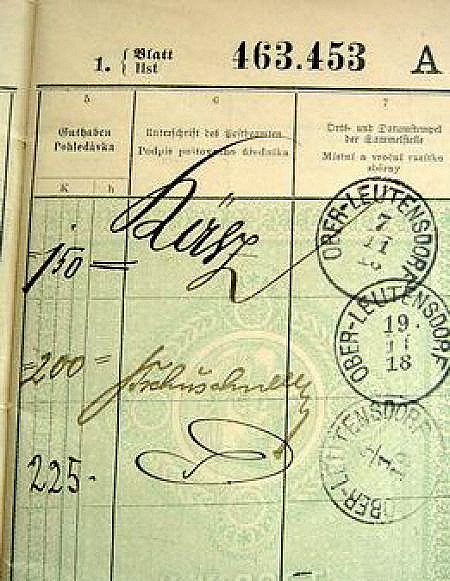 1. { Blatt 463.453 A
List
5 6 7
Guthaben Unterschrift des Postbeamten Orts- und Datumstempel
der Sammelstelle
Pohledávka Podpis poštovního úředníka Místní a vroční razítko
sběrny
K h
OBER-LEUTENSDORF
7
11
150 —
OBER-LEUTENSDORF
19
11
18
= 200 =
OBER-LEUTENSDORF
225 -